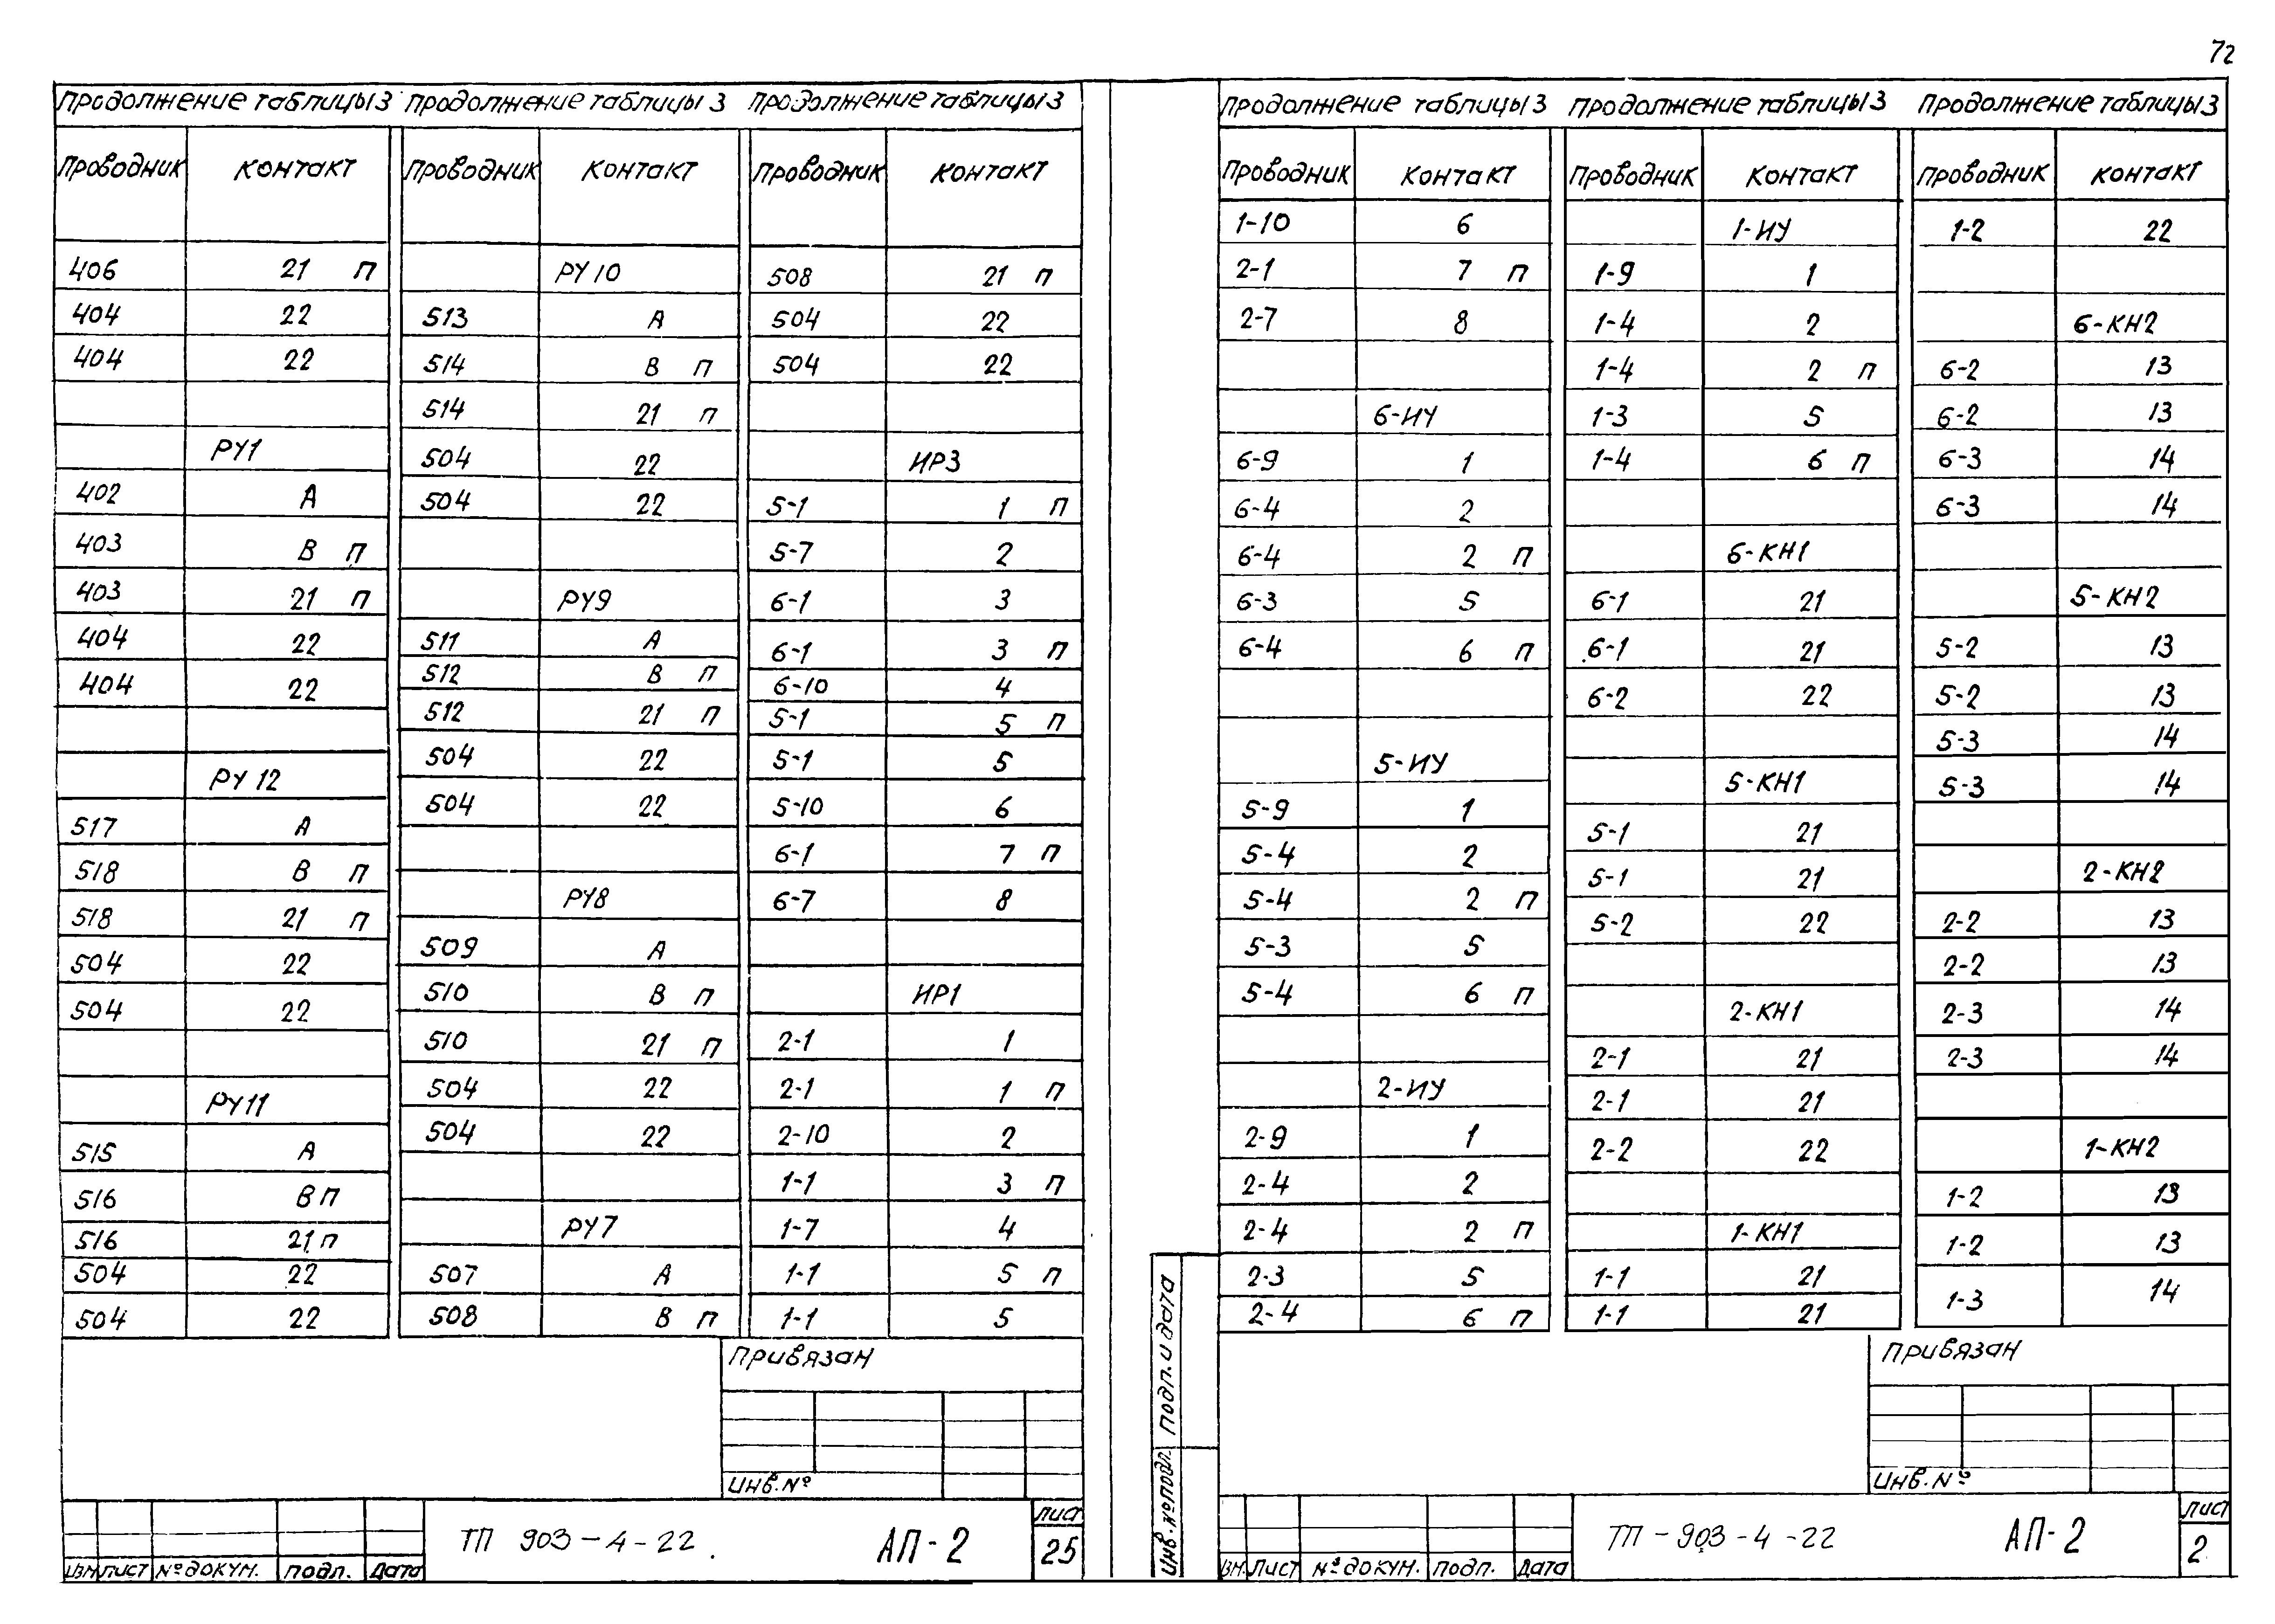 72
Продолжение таблицы 3
Проводник Контакт
406 21 П
404 22
404 22
РУ1
402 А
403 В П
403 21 П
404 22
404 22
РУ 12
517 А
518 В П
518 21 П
504 22
504 22
РУ11
515 А
516 В П
516 21 П
504 22
504 22
Продолжение таблицы 3
Проводник Контакт
РУ10
513 А
514 В П
514 21 П
504 22
504 22
РУ9
511 А
512 В П
512 21 П
504 22
504 22
РУ8
509 А
510 В П
510 21 П
504 22
504 22
РУ7
507 А
508 В П
Продолжение таблицы 3
Проводник Контакт
508 21 П
504 22
504 22
ИР3
5-1 1 П
5-7 2
6-1 3
6-1 3 П
6-10 4
5-1 5 П
5-1 5
5-10 6
6-1 7 П
6-7 8
ИР1
2-1 1
2-1 1 П
2-10 2
1-1 3 П
1-7 4
1-1 5 П
1-1 5
Привязан
Инв. №
Изм Лист № докум. Подп. Дата
ТП 903-4-22. АП-2
Лист
25
Продолжение таблицы 3
Проводник Контакт
1-10 6
2-1 7 П
2-7 8
6-ИУ
6-9 1
6-4 2
6-4 2 П
6-3 5
6-4 6 П
5-ИУ
5-9 1
5-4 2
5-4 2 П
5-3 5
5-4 6 П
2-ИУ
2-9 1
2-4 2
2-4 2 П
2-3 5
2-4 6 П
Продолжение таблицы 3
Проводник Контакт
1-ИУ
1-9 1
1-4 2
1-4 2 П
1-3 5
1-4 6 П
6-КН1
6-1 21
6-1 21
6-2 22
5-КН1
5-1 21
5-1 21
5-2 22
2-КН1
2-1 21
2-1 21
2-2 22
1-КН1
1-1 21
1-1 21
Продолжение таблицы 3
Проводник Контакт
1-2 22
6-КН2
6-2 13
6-2 13
6-3 14
6-3 14
5-КН2
5-2 13
5-2 13
5-3 14
5-3 14
2-КН2
2-2 13
2-2 13
2-3 14
2-3 14
1-КН2
1-2 13
1-2 13
1-3 14
Подп. и дата
Инв. № подл.
Привязан
Инв. №
Изм. Лист № докум. Подп. Дата
ТП-903-4-22 АП-2
Лист
2